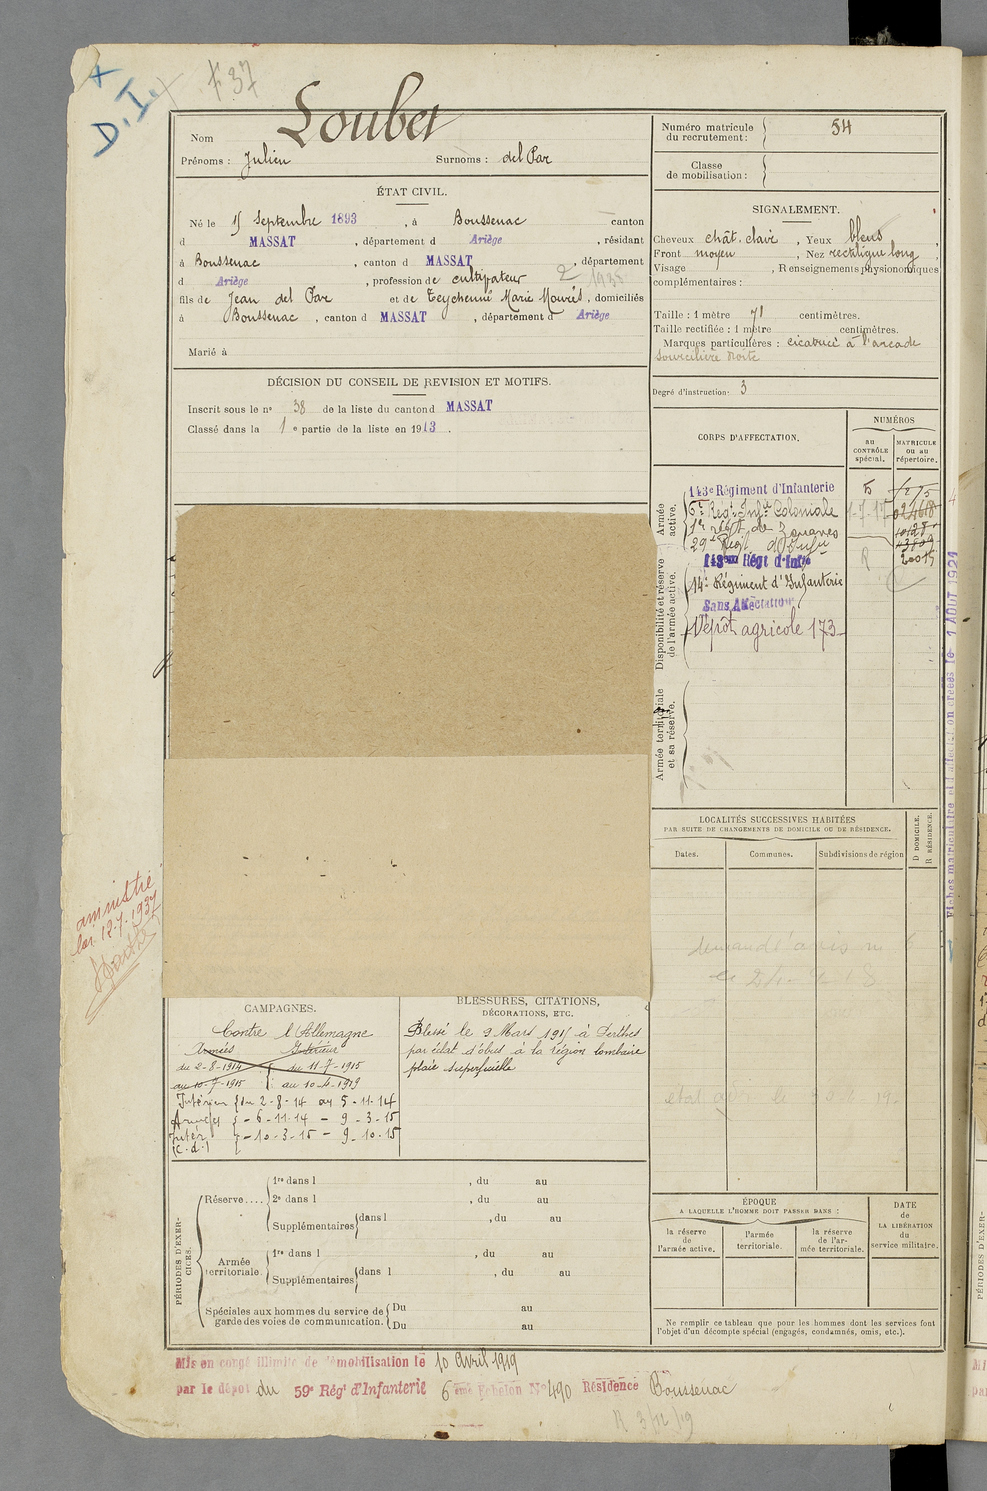 F 37
D.I.
Nom Loubet
Prénoms : Julien Surnoms : del Par
Numéro matricule du recrutement : 54
Classe de mobilisation :
ÉTAT CIVIL.
Né le 15 Septembre 1893, à Boussenac canton
d MASSAT, département d Ariège, résidant
à Boussenac, canton d MASSAT, département
d Ariège, profession de cultivateur
fils de Jean del Par et de Teychenné Marie Mourès, domiciliés
à Boussenac, canton d MASSAT, département d Ariège
Marié à
SIGNALEMENT.
Cheveux chât. clair, Yeux bleus,
Front moyen, Nez rectiligne long,
Visage , Renseignements physionomiques
complémentaires :
Taille : 1 mètre 71 centimètres.
Taille rectifiée : 1 mètre centimètres.
Marques particulières : cicatrice à l'arcade
sourcilière droite
Degré d'instruction : 3
DÉCISION DU CONSEIL DE REVISION ET MOTIFS.
Inscrit sous le n° 38 de la liste du canton d MASSAT
Classé dans la 1e partie de la liste en 1913.
CORPS D'AFFECTATION.
NUMÉROS
au CONTRÔLE spécial.
MATRICULE ou au répertoire.
Armée active.
143e Régiment d'Infanterie
6e Régt Inf.ie Coloniale
1er régt de Zouaves
29e Regt d'Infie
Disponibilité et réserve de l'armée active.
143eme Régt d'Infie
14e Régiment d'Infanterie
Sans Affectation
Dépôt agricole 173
Armée territoriale et sa réserve.
Fiches matriculaire et d'affectation créées le 1 AOUT 1921
LOCALITÉS SUCCESSIVES HABITÉES
PAR SUITE DE CHANGEMENTS DE DOMICILE OU DE RÉSIDENCE.
Dates. Communes. Subdivisions de région
D DOMICILE.
R RÉSIDENCE.
amnistié
loi 12.7.1937
CAMPAGNES.
Contre l'Allemagne
Armées Intérieur
du 2-8-1914 du 11-7-1915
au 10-7-1915 au 10-4-1919
Intérieur du 2-8-14 au 5-11-14
Armées - 6-11-14 - 9-3-15
Intér - 10-3-15 - 9-10-15
(c.d.)
BLESSURES, CITATIONS,
DÉCORATIONS, ETC.
Blessé le 9 Mars 1915 à Perthes
par éclat d'obus à la région lombaire
plaie superficielle
PÉRIODES D'EXERCICES.
Réserve....
1re dans l , du au
2e dans l , du au
Supplémentaires dans l , du au
Armée territoriale.
1re dans l , du au
Supplémentaires dans l , du au
Spéciales aux hommes du service de garde des voies de communication.
Du au
Du au
ÉPOQUE
A LAQUELLE L'HOMME DOIT PASSER DANS :
la réserve de l'armée active.
l'armée territoriale.
la réserve de l'armée territoriale.
DATE de LA LIBÉRATION du service militaire.
Ne remplir ce tableau que pour les hommes dont les services font
l'objet d'un décompte spécial (engagés, condamnés, omis, etc.).
Mis en congé illimité de démobilisation le 10 Avril 1919
par le dépôt du 59e Régt d'Infanterie 6eme Echelon N° 490 Résidence Boussenac
R 3/12/19